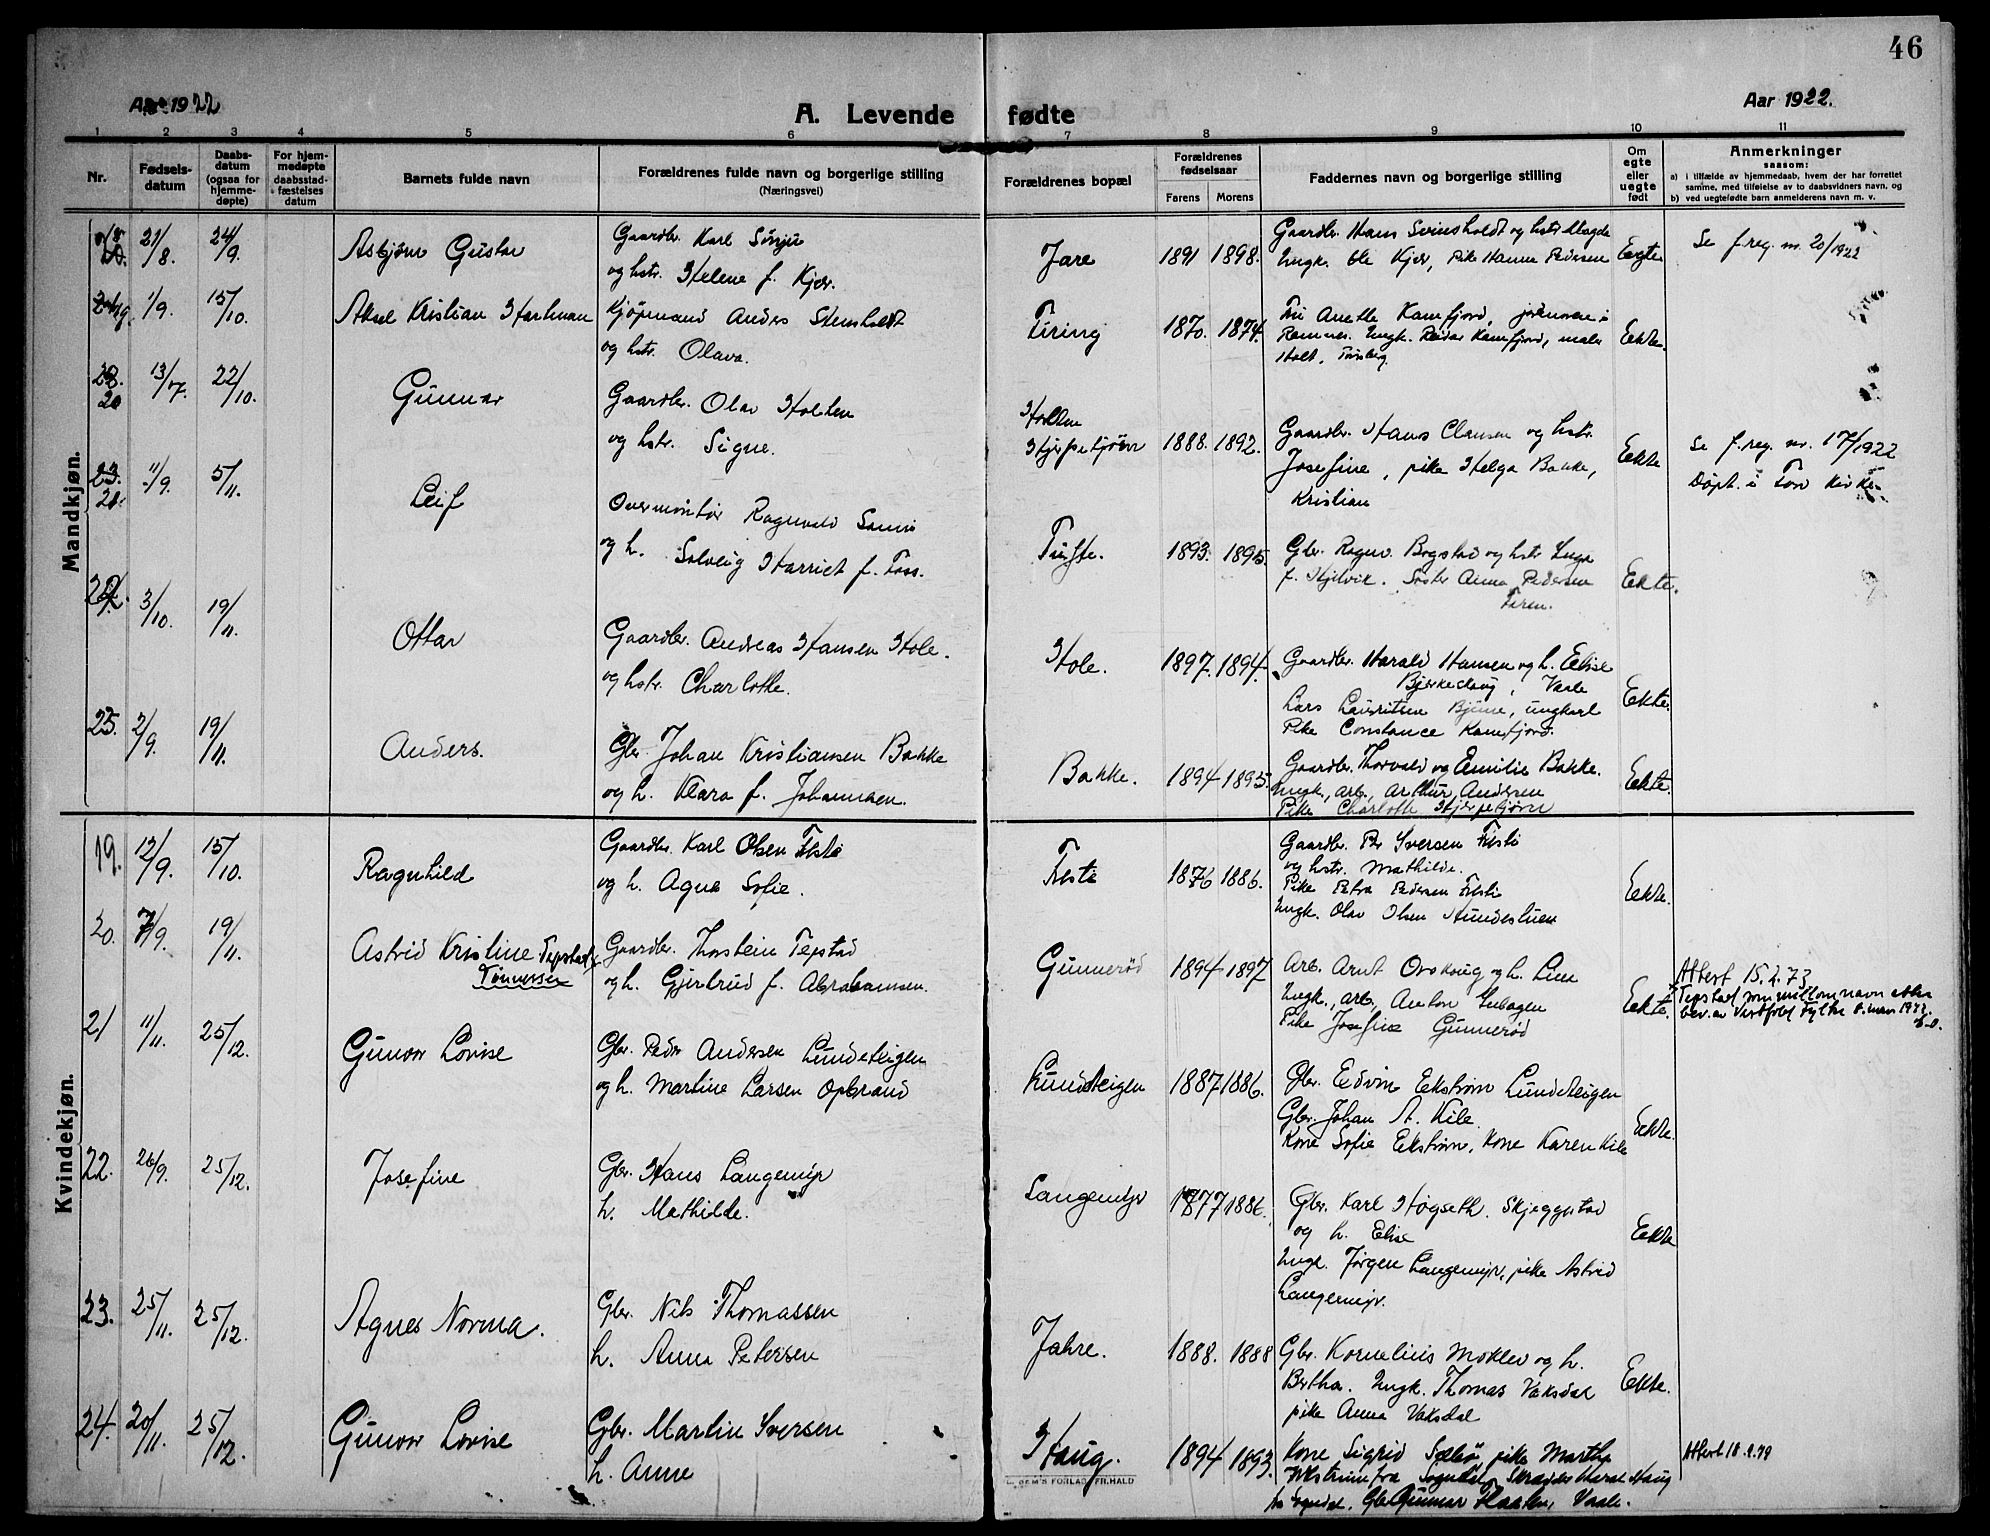 46
Aar 1922
A. Levende fødte
Aar 1922.
1 2 3 4 5 6 7 8 9 10 11
Nr.
Fødsels-
datum
Daabs-
datum
(ogsaa for
hjemme-
døpte)
For hjem-
medøpte
daabsstad-
fæstelses
datum
Barnets fulde navn
Forældrenes fulde navn og borgerlige stilling
(Næringsvei)
Forældrenes bopæl
Forældrenes
fødselsaar
Farens Morens
Faddernes navn og borgerlige stilling
Om
egte
eller
uegte
født
Anmerkninger
saasom:
a) i tilfælde av hjemmedaab, hvem der har forrettet
samme, med tilføielse av to daabsvidners navn, og
b) ved uegtefødte barn anmelderens navn m. v.
Mandkjøn.
18. 21/8. 24/9. Asbjörn Gustav
Gaardbr. Karl Sönju
og hstr. Helene f. Kjær.
Jare 1891 1898.
Gaardbr. Hans Svinsholdt og hstr. Magda
Ungk. Ole Kjær, Pike Hanna Pedersen
Eegte
Se f.reg. nr. 20/1922
19. 1/9. 15/10. Aksel Kristian Hartman
Kjøpmand Anders Stensholdt
og hstr. Olava.
Firing 1870. 1874.
Fru Anette Kamfjord, jordmor i
Ramnes. Ungk. Reidar Kamfjord, maler
Holt, Tönsberg.
Eekte.
20 13/7. 22/10. Gunnar
Gaardbr. Olav Holten
og hstr. Signe.
Holten
Hjerpetjörn 1888. 1892.
Gaardbr. Hans Clausen og hstr.
Josefine, pike Helga Bakke,
Kristian
Eekte
Se f.reg. nr. 17/1922
Döpt i Fon Kirke
21. 11/9. 5/11. Leif
Overmontör Ragnvald Sanni
og h. Solveig Harriet f. Foss.
Tufte. 1893. 1895.
Gbr. Ragnv. Bogstad og hstr. Inga
f. Hjelvik. Söster Anna Pedersen
Firen.
Eekte.
22. 3/10. 19/11. Ottar
Gaardbr. Andreas Hansen Hole.
og hstr. Charlotte.
Hole. 1897. 1894.
Gaardbr. Harald Hansen og h. Eelise
Bjerkeskaug, Vaale
Lars Lauritsen Bjune, ungkarl
Pike Constance Kamfjord.
Eekte.
23. 2/9. 19/11. Anders.
Gbr. Johan Kristiansen Bakke
og h. Klara f. Johannsen.
Bakke. 1894 1895.
Gaardbr. Thorvald og Emilie Bakke.
Ungk., arb., Arthur Andersen
Pike Charlotte Hjerpetjørn
Eekte.
Kvindekjøn.
19. 12/9. 15/10. Ragnhild
Gaardbr. Karl Olsen Feste
og h. Agna Sofie.
Feste 1876 1886.
Gaardbr. Per Iversen Feste
og hstr. Mathilde.
Pike Petra Pedersen Feste
Ungk. Olav Olsen Hundesluen
Eekte.
20. 7/9. 19/11. Astrid Kristine Tepstad x
Tönnessen
Gaardbr. Thorstein Tepstad
og h. Gjertrud f. Abrahamsen.
Gunnerød 1894 1897
Arb. Arnt Orskoug og h. Lina
Ungk., arb., Anton Enhagen
Pike Josefine Gunnerød
Eekte.
Attest 15.2.73
x Tepstad som mellomnavn etter
bev. av Vestfold Fylke 8. mars 1973.
21 11/11. 25/12. Gunvor Lovise
Gbr. Peder Andersen Lundeteigen
og h. Martine Larsen Opbrand
Lundeteigen 1887 1886.
Gbr. Eedvin Eekström Lundeteigen
Gbr. Johan A. Kile.
Kone Sofie Eekström, Kone Karen Kile
Eekte.
22. 26/9. 25/12. Josefine
Gbr. Hans Langemyr
h. Mathilde.
Langemyr 1877 1886.
Gbr. Karl Högseth. Skjeggestad
og h. Elise
Ungk. Jörgen Langemyr, pike Astrid
Langemyr.
Eekte
23. 25/11. 25/12. Agnes Norma.
Gbr. Nils Thomassen
h. Anna Petersen
Jahre. 1888. 1888
Gbr. Kornelius Moklev og h.
Bertha. Ungk. Thomas Vaksdal
pike Anna Vaksdal
Eekte.
24. 20/11. 25/12. Gunvor Lovise
Gbr. Martin Iversen
h. Anne
Haug. 1894 1893.
Kone Sigrid Sælbö, pike Martha
fra Sogndal, Haug
fra Sogndal. Gbr. Gunnar Haaken, Vaale.
Attest 18.2.79
FORLAG, FR.HALD